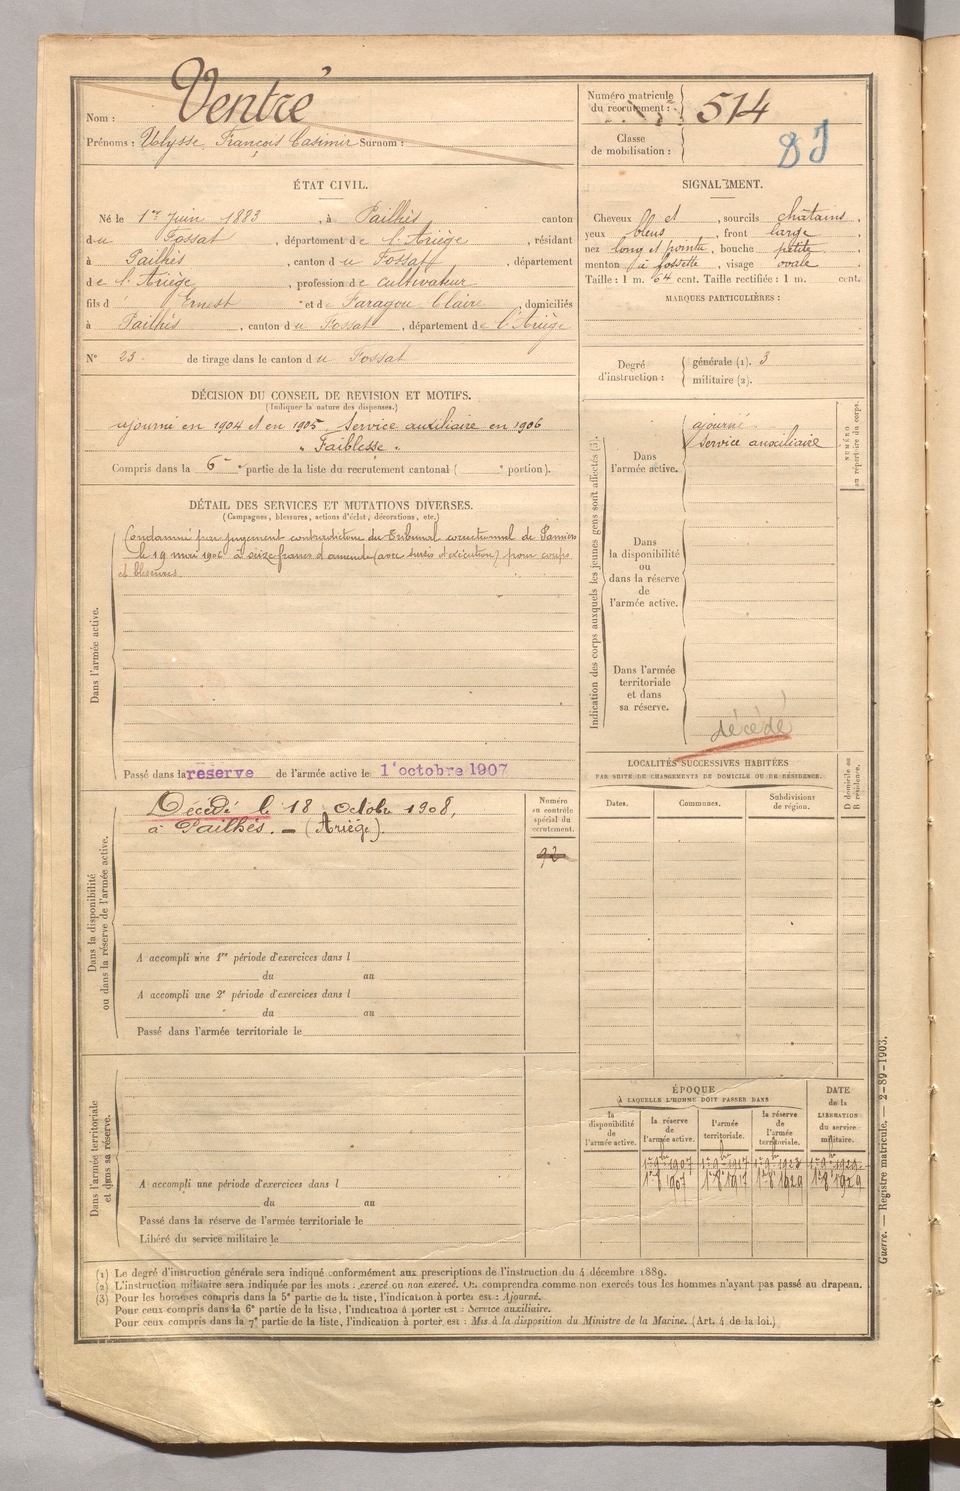 Nom : Ventré
Prénoms : Ulysse François Casimir Surnom :
Numéro matricule du recrutement : 574
Classe de mobilisation :
ÉTAT CIVIL.
Né le 1er juin 1883, à Pailhès canton
du Fossat, département de l'Ariège, résidant
à Pailhès, canton du Fossat, département
de l'Ariège, profession de cultivateur
fils d' Ernest et de Faragou Claire, domiciliés
à Pailhès, canton du Fossat, département de l'Ariège
N° 23 de tirage dans le canton du Fossat
SIGNALEMENT.
Cheveux bl et, sourcils châtains,
yeux bleus, front large,
nez long et pointe, bouche petite,
menton à fossette, visage ovale
Taille : 1 m. 64 cent. Taille rectifiée : 1 m. cent.
MARQUES PARTICULIÈRES :
Degré d'instruction : générale (1). 3
militaire (2).
DÉCISION DU CONSEIL DE REVISION ET MOTIFS.
(Indiquer la nature des dispenses.)
ajourné en 1904 et en 1905. Service auxiliaire en 1906
"Faiblesse".
Compris dans la 6e partie de la liste du recrutement cantonal ( e portion).
DÉTAIL DES SERVICES ET MUTATIONS DIVERSES.
(Campagnes, blessures, actions d'éclat, décorations, etc.)
Condamné par jugement contradictoire du Tribunal correctionnel de Pamiers
le 19 mai 1906 à seize francs d'amende (avec sursis d'exécution) pour coups
et blessures
Dans l'armée active.
Passé dans la réserve de l'armée active le 1er octobre 1907
Indication des corps auxquels les jeunes gens sont affectés (3).
Dans l'armée active.
ajourné
Service auxiliaire
Dans la disponibilité ou dans la réserve de l'armée active.
Dans l'armée territoriale et dans sa réserve.
décédé
NUMÉRO au répertoire du corps.
Dans la disponibilité ou dans la réserve de l'armée active.
Décédé le 18 octobre 1908,
à Pailhès. — (Ariège).
Numéro au contrôle spécial du recrutement.
92
A accompli une 1re période d'exercices dans l
du au
A accompli une 2e période d'exercices dans l
du au
Passé dans l'armée territoriale le
LOCALITÉS SUCCESSIVES HABITÉES
PAR SUITE DE CHANGEMENTS DE DOMICILE OU DE RÉSIDENCE.
Dates. Communes. Subdivisions de région.
D domicile ou R résidence.
Dans l'armée territoriale et dans sa réserve.
A accompli une période d'exercices dans l
du au
Passé dans la réserve de l'armée territoriale le
Libéré du service militaire le
ÉPOQUE
À LAQUELLE L'HOMME DOIT PASSER DANS
la disponibilité de l'armée active. la réserve de l'armée active. l'armée territoriale. la réserve de l'armée territoriale.
DATE de la LIBÉRATION du service militaire.
1er 9bre 1907 1er 9bre 1917 1er 9bre 1923 1er 9bre 1929
1er 8bre 1907 1er 8bre 1917 1er 8bre 1929
Guerre. — Registre matricule. — 2-89-1903.
(1) Le degré d'instruction générale sera indiqué conformément aux prescriptions de l'instruction du 4 décembre 1889.
(2) L'instruction militaire sera indiquée par les mots : exercé ou non exercé. On comprendra comme non exercés tous les hommes n'ayant pas passé au drapeau.
(3) Pour les hommes compris dans la 5e partie de la liste, l'indication à porter est : Ajourné.
Pour ceux compris dans la 6e partie de la liste, l'indication à porter est : Service auxiliaire.
Pour ceux compris dans la 7e partie de la liste, l'indication à porter est : Mis à la disposition du Ministre de la Marine. (Art. 4 de la loi.)